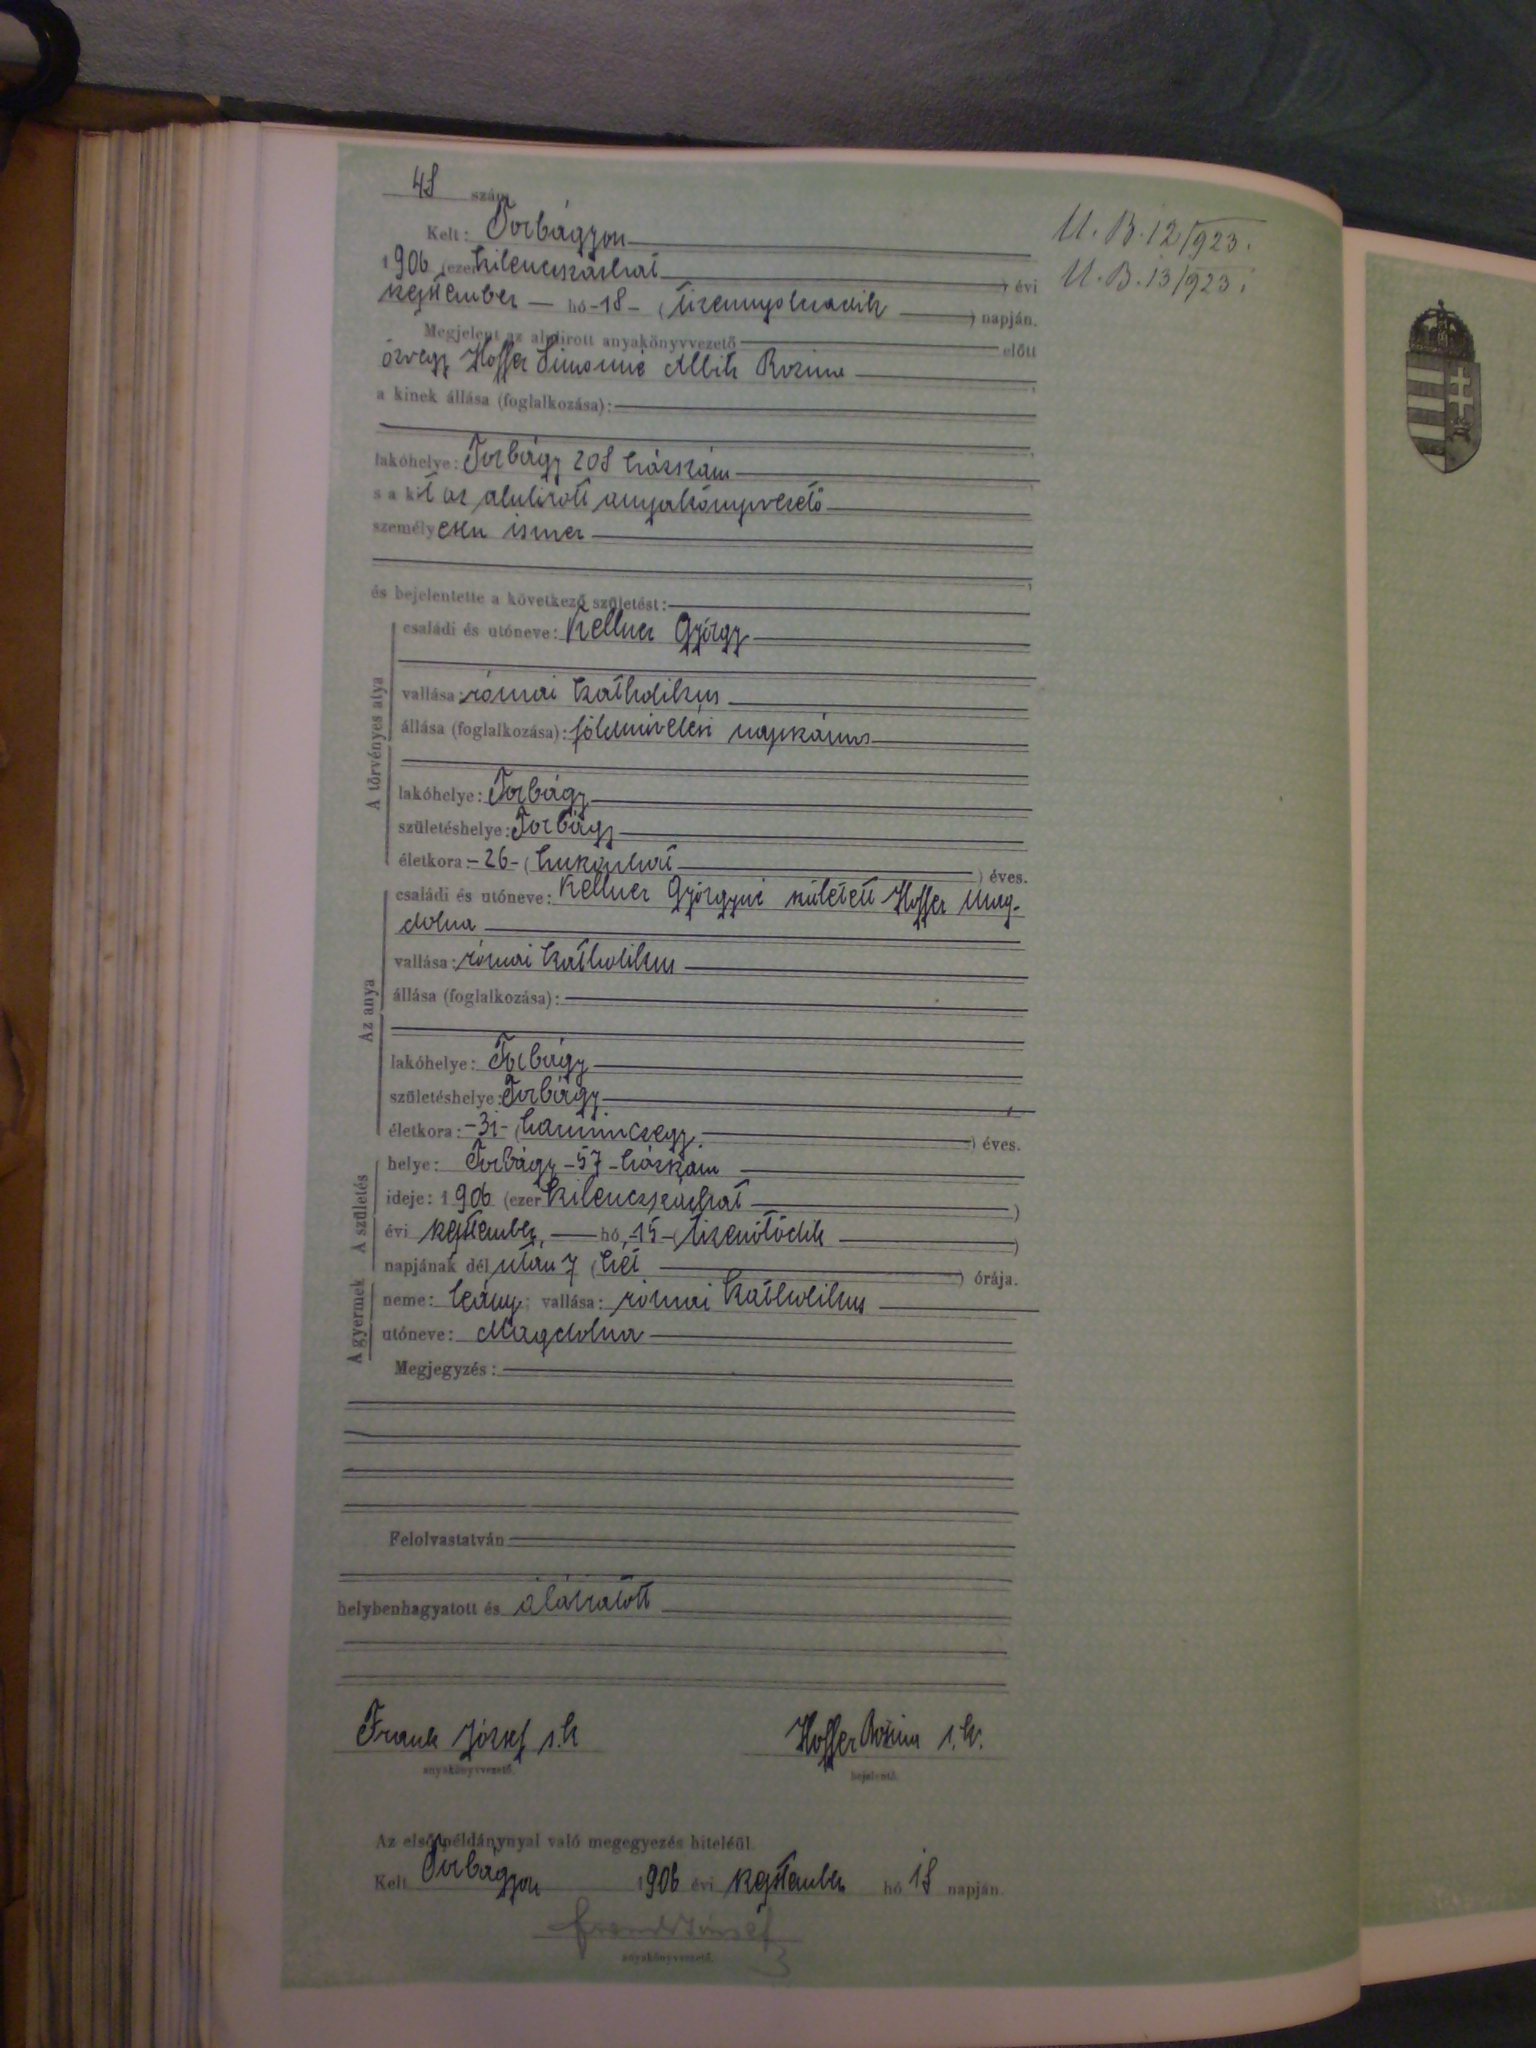 48 szám
Kelt: Torbágyon
1906 (ezerkilencszázhat) évi
szeptember hó -18- (tizennyolcadik) napján.
Megjelent az alulirott anyakönyvvezető előtt
özvegy Hoffer Simonné Albik Rozina,
a kinek állása (foglalkozása):
lakóhelye: Torbágy 208 házszám,
s a kit az alulirott anyakönyvvezető
személyesen ismer
és bejelentette a következő születést:
A törvényes atya
családi és utóneve: Kellner György
vallása: római katholikus
állása (foglalkozása): földmivelési napszámos
lakóhelye: Torbágy
születéshelye: Torbágy
életkora: -26- (huszonhat) éves.
Az anya
családi és utóneve: Kellner Györgyné született Hoffer Mag-
dolna
vallása: római katholikus
állása (foglalkozása):
lakóhelye: Torbágy
születéshelye: Torbágy
életkora: -31- (harmincegy) éves.
A születés
helye: Torbágy -57- házszám
ideje: 1906 (ezerkilencszázhat)
évi szeptember hó -15- (tizenötödik)
napjának dél után 7 (hét) órája.
A gyermek
neme: leány; vallása: római katholikus
utóneve: Magdolna
Megjegyzés:
Felolvastatván
helybenhagyatott és aláiratott
Frank József s.k
anyakönyvvezető.
Hoffer Rozina s.k.
bejelentő.
Az első példánynyal való megegyezés hiteléül.
Kelt Torbágyon 1906 évi szeptember hó 18 napján.
Frank József
anyakönyvvezető.
U. B. 12/923.
U. B. 13/923.